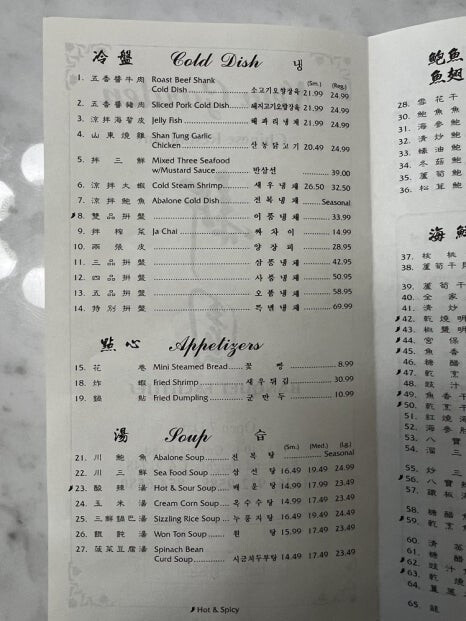 冷盤 Cold Dish 냉
(Sm.) (Reg.)
1. 五香醬牛肉 Roast Beef Shank
Cold Dish 소고기오향장육 21.99 24.99
2. 五香醬豬肉 Sliced Pork Cold Dish 돼지고기오향장육 21.99 24.99
3. 涼拌海蜇皮 Jelly Fish 해파리냉채 21.99 24.99
4. 山東燒雞 Shan Tung Garlic
Chicken 산동닭고기 20.49 24.99
5. 拌三鮮 Mixed Three Seafood
w/Mustard Sauce 반삼선 39.00
6. 涼拌大蝦 Cold Steam Shrimp 새우냉채 26.50 32.50
7. 涼拌鮑魚 Abalone Cold Dish 전복냉채 Seasonal
8. 雙品拼盤 이품냉채 33.99
9. 拌榨菜 Ja Chai 짜차이 14.99
10. 兩張皮 양장피 28.95
11. 三品拼盤 삼품냉채 42.95
12. 四品拼盤 사품냉채 50.95
13. 五品拼盤 오품냉채 58.95
14. 特別拼盤 특변냉채 69.99
點心 Appetizers
15. 花卷 Mini Steamed Bread 꽃빵 8.99
18. 炸蝦 Fried Shrimp 새우튀김 30.99
19. 鍋貼 Fried Dumpling 군만두 10.99
湯 Soup 습
(Sm.) (Med.) (Lg.)
21. 川鮑魚 Abalone Soup 전복탕 Seasonal
22. 川三鮮 Sea Food Soup 삼선탕 16.49 19.49 24.99
23. 酸辣湯 Hot & Sour Soup 매운탕 14.99 17.99 23.49
24. 玉米湯 Cream Corn Soup 옥수수탕 14.99 17.99 23.49
25. 三鮮鍋巴湯 Sizzling Rice Soup 누룽지탕 16.49 19.49 24.99
26. 餛飩湯 Won Ton Soup 훤탕 15.99 17.49 23.49
27. 菠菜豆腐湯 Spinach Bean
Curd Soup 시금치두부탕 14.49 17.49 23.49
Hot & Spicy
鮑魚
魚翅
28. 雪花干
30. 鮑魚魚
31. 海參鮑
32. 清炒鮑
33. 蠔油鮑
34. 冬菇鮑
35. 蘆筍鮑
36. 松茸鮑
海鮮
37. 核桃
38. 蘆筍干貝
39. 蘆筍干
40. 全家
41. 清炒
42. 乾燒明
43. 椒鹽明
44. 宮保
45. 魚香
46. 乾烹
47. 豉汁
49. 魚香干
50. 乾烹干
51. 紅燒
52. 海參
53. 八寶
54. 溜三
55. 炒三
56. 八寶辣
57. 鐵板海
58. 糖醋
59. 乾烹
60. 清蒸
61. 糖醋
62. 豉汁
63. 乾燒
64. 薑蔥
65. 龍